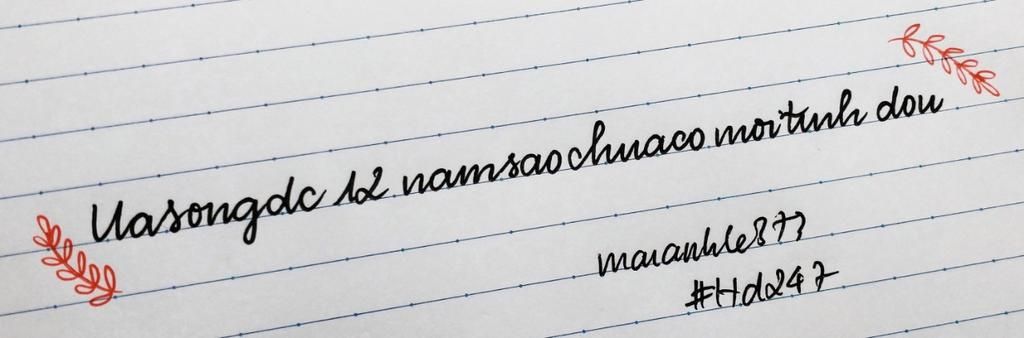 Uasongdc 12 namsaochuaco moitinh dou
maianhle873
#Hd247